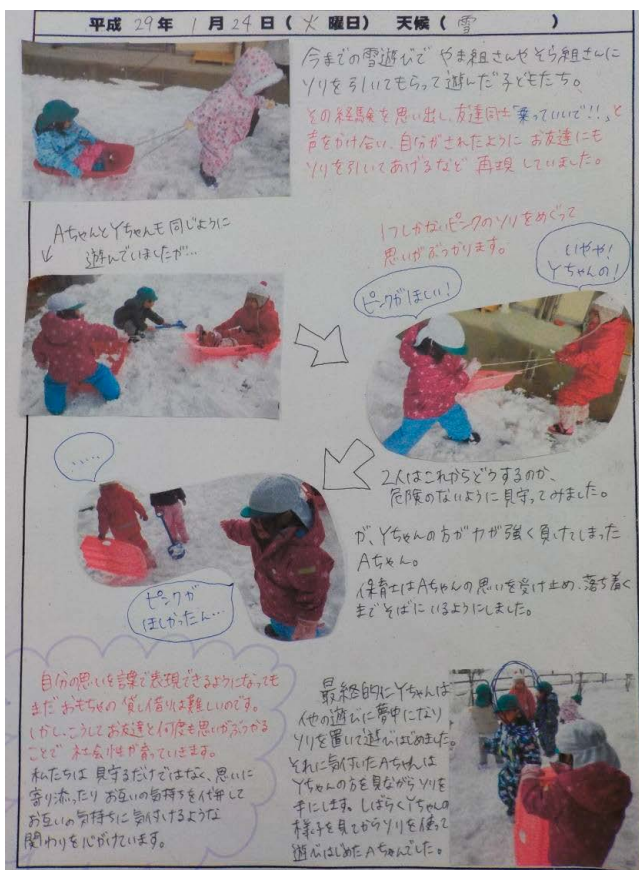 平成 29年 1月 24日(火曜日) 天候(雪)
今までの雪遊びで やま組さんやそら組さんに
ソリを引いてもらって遊んだ子どもたち。
その経験を思い出し、友達同士「乗っていいで!!」と
声をかけ合い、自分がされたように お友達にも
ソリを引いてあげるなど 再現していました。
AちゃんとYちゃんも同じように
遊んでいましたが…
1つしかないピンクのソリをめぐって
思いがぶつかります。
いやや!
Yちゃんの!
ピンクがほしい!
……
2人はこれからどうするのか、
危険のないように見守ってみました。
が、Yちゃんの方が力が強く負けてしまった
Aちゃん。
保育士はAちゃんの思いを受け止め、落ち着く
までそばにいるようにしました。
ピンクが
ほしかったん…
自分の思いを言葉で表現できるようになっても
まだおもちゃの貸し借りは難しいのです。
しかし、こうしてお友達と何度も思いがぶつかる
ことで 社会性が育っていきます。
私たちは 見守るだけではなく、思いに
寄り添ったり お互いの気持ちを代弁して
お互いの気持ちに気付けるような
関わりを心がけています。
最終的にYちゃんは
他の遊びに夢中になり
ソリを置いて遊びはじめました。
それに気付いたAちゃんは
Yちゃんの方を見ながらソリを
手にします。しばらくYちゃんの
様子を見てからソリを使って
遊びはじめたAちゃんでした。